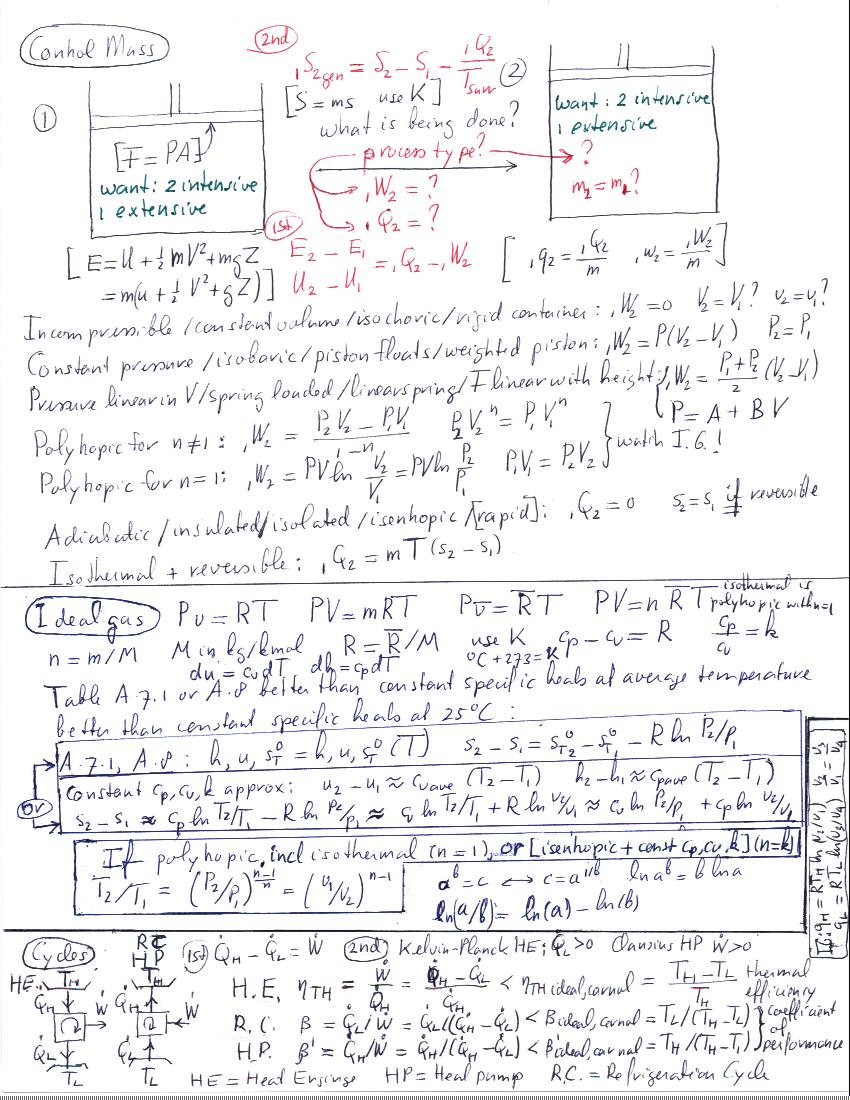 Control Mass
2nd
₁S₂gen = S₂ – S₁ – ₁Q₂/Tsurr
[S = ms use K]
what is being done?
process type?
₁W₂ = ?
₁Q₂ = ?
①
[F = PA]
want: 2 intensive
1 extensive
②
want: 2 intensive
1 extensive
?
m₂ = m₁?
[E = U + ½mV² + mgZ
= m(u + ½V² + gZ)]
1st
E₂ – E₁
U₂ – U₁ = ₁Q₂ – ₁W₂
[₁q₂ = ₁Q₂/m ₁w₂ = ₁W₂/m]
Incompressible/constant volume/isochoric/rigid container: ₁W₂ = 0 V₂ = V₁? v₂ = v₁?
Constant pressure/isobaric/piston floats/weighted piston: ₁W₂ = P(V₂ – V₁) P₂ = P₁
Pressure linear in V/spring loaded/linear spring/F linear with height: ₁W₂ = (P₁ + P₂)/2 (V₂ – V₁)
P = A + BV
Polytropic for n ≠ 1: ₁W₂ = (P₂V₂ – P₁V₁)/(1 – n) P₂V₂ⁿ = P₁V₁ⁿ
watch I.G.!
Polytropic for n = 1: ₁W₂ = PV ln V₂/V₁ = PV ln P₂/P₁ P₁V₁ = P₂V₂
Adiabatic/insulated/isolated/isentropic/[rapid]: ₁Q₂ = 0 s₂ = s₁ if reversible
Isothermal + reversible: ₁Q₂ = mT(s₂ – s₁)
Ideal gas Pv = RT PV = mRT Pv̄ = R̄T PV = nR̄T isothermal is
polytropic with n=1
n = m/M M in kg/kmol R = R̄/M use K
°C + 273 = K
cp – cv = R cp/cv = k
du = cvdT dh = cpdT
Table A.7.1 or A.8 better than constant specific heats at average temperature
better than constant specific heats at 25°C:
or
A.7.1, A.8: h, u, s°T = h, u, s°T(T) s₂ – s₁ = s°T₂ – s°T₁ – R ln P₂/P₁
Constant cp, cv, k approx: u₂ – u₁ ≈ cvave(T₂ – T₁) h₂ – h₁ ≈ cpave(T₂ – T₁)
s₂ – s₁ ≈ cp ln T₂/T₁ – R ln P₂/P₁ ≈ cv ln T₂/T₁ + R ln v₂/v₁ ≈ cv ln P₂/P₁ + cp ln v₂/v₁
If polytropic, incl isothermal (n=1), or [isentropic + const cp, cv, k](n=k)
T₂/T₁ = (P₂/P₁)^((n–1)/n) = (v₁/v₂)^(n–1)
a^b = c ⟷ c = a^1/b ln a^b = b ln a
ln(a/b) = ln(a) – ln(b)
IG: qH = RTH ln(v₂/v₁)
qL = RTL ln(v₃/v₄)
v₂/v₁ = v₃/v₄
Cycles
HE
TH
Q̇H
Ẇ
Q̇L
TL
RC
HP
TH
Q̇H
Ẇ
Q̇L
TL
1st Q̇H – Q̇L = Ẇ 2nd Kelvin-Planck HE: Q̇L > 0 Clausius HP Ẇ > 0
H.E. ηTH = Ẇ/Q̇H = (Q̇H – Q̇L)/Q̇H < ηTH ideal, carnot = (TH – TL)/TH thermal
efficiency
R.C. β = Q̇L/Ẇ = Q̇L/(Q̇H – Q̇L) < β ideal, carnot = TL/(TH – TL)
H.P. β' = Q̇H/Ẇ = Q̇H/(Q̇H – Q̇L) < β' ideal, carnot = TH/(TH – TL)
coefficient
of
performance
HE = Heat Engine HP = Heat pump R.C. = Refrigeration Cycle